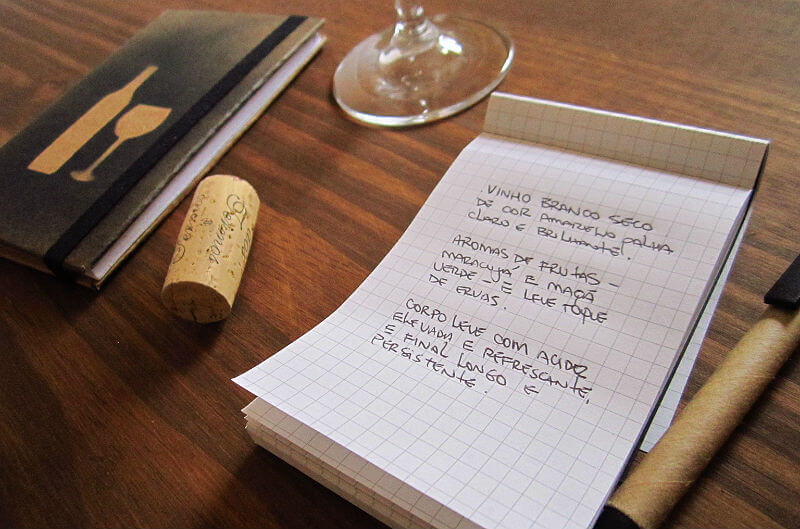 VINHO BRANCO SECO
DE COR AMARELO PALHA
CLARO E BRILHANTE.
AROMAS DE FRUTAS -
MARACUJÁ E MAÇÃ
VERDE - E LEVE TOQUE
DE ERVAS.
CORPO LEVE COM ACIDEZ
ELEVADA E REFRESCANTE,
E FINAL LONGO E
PERSISTENTE.